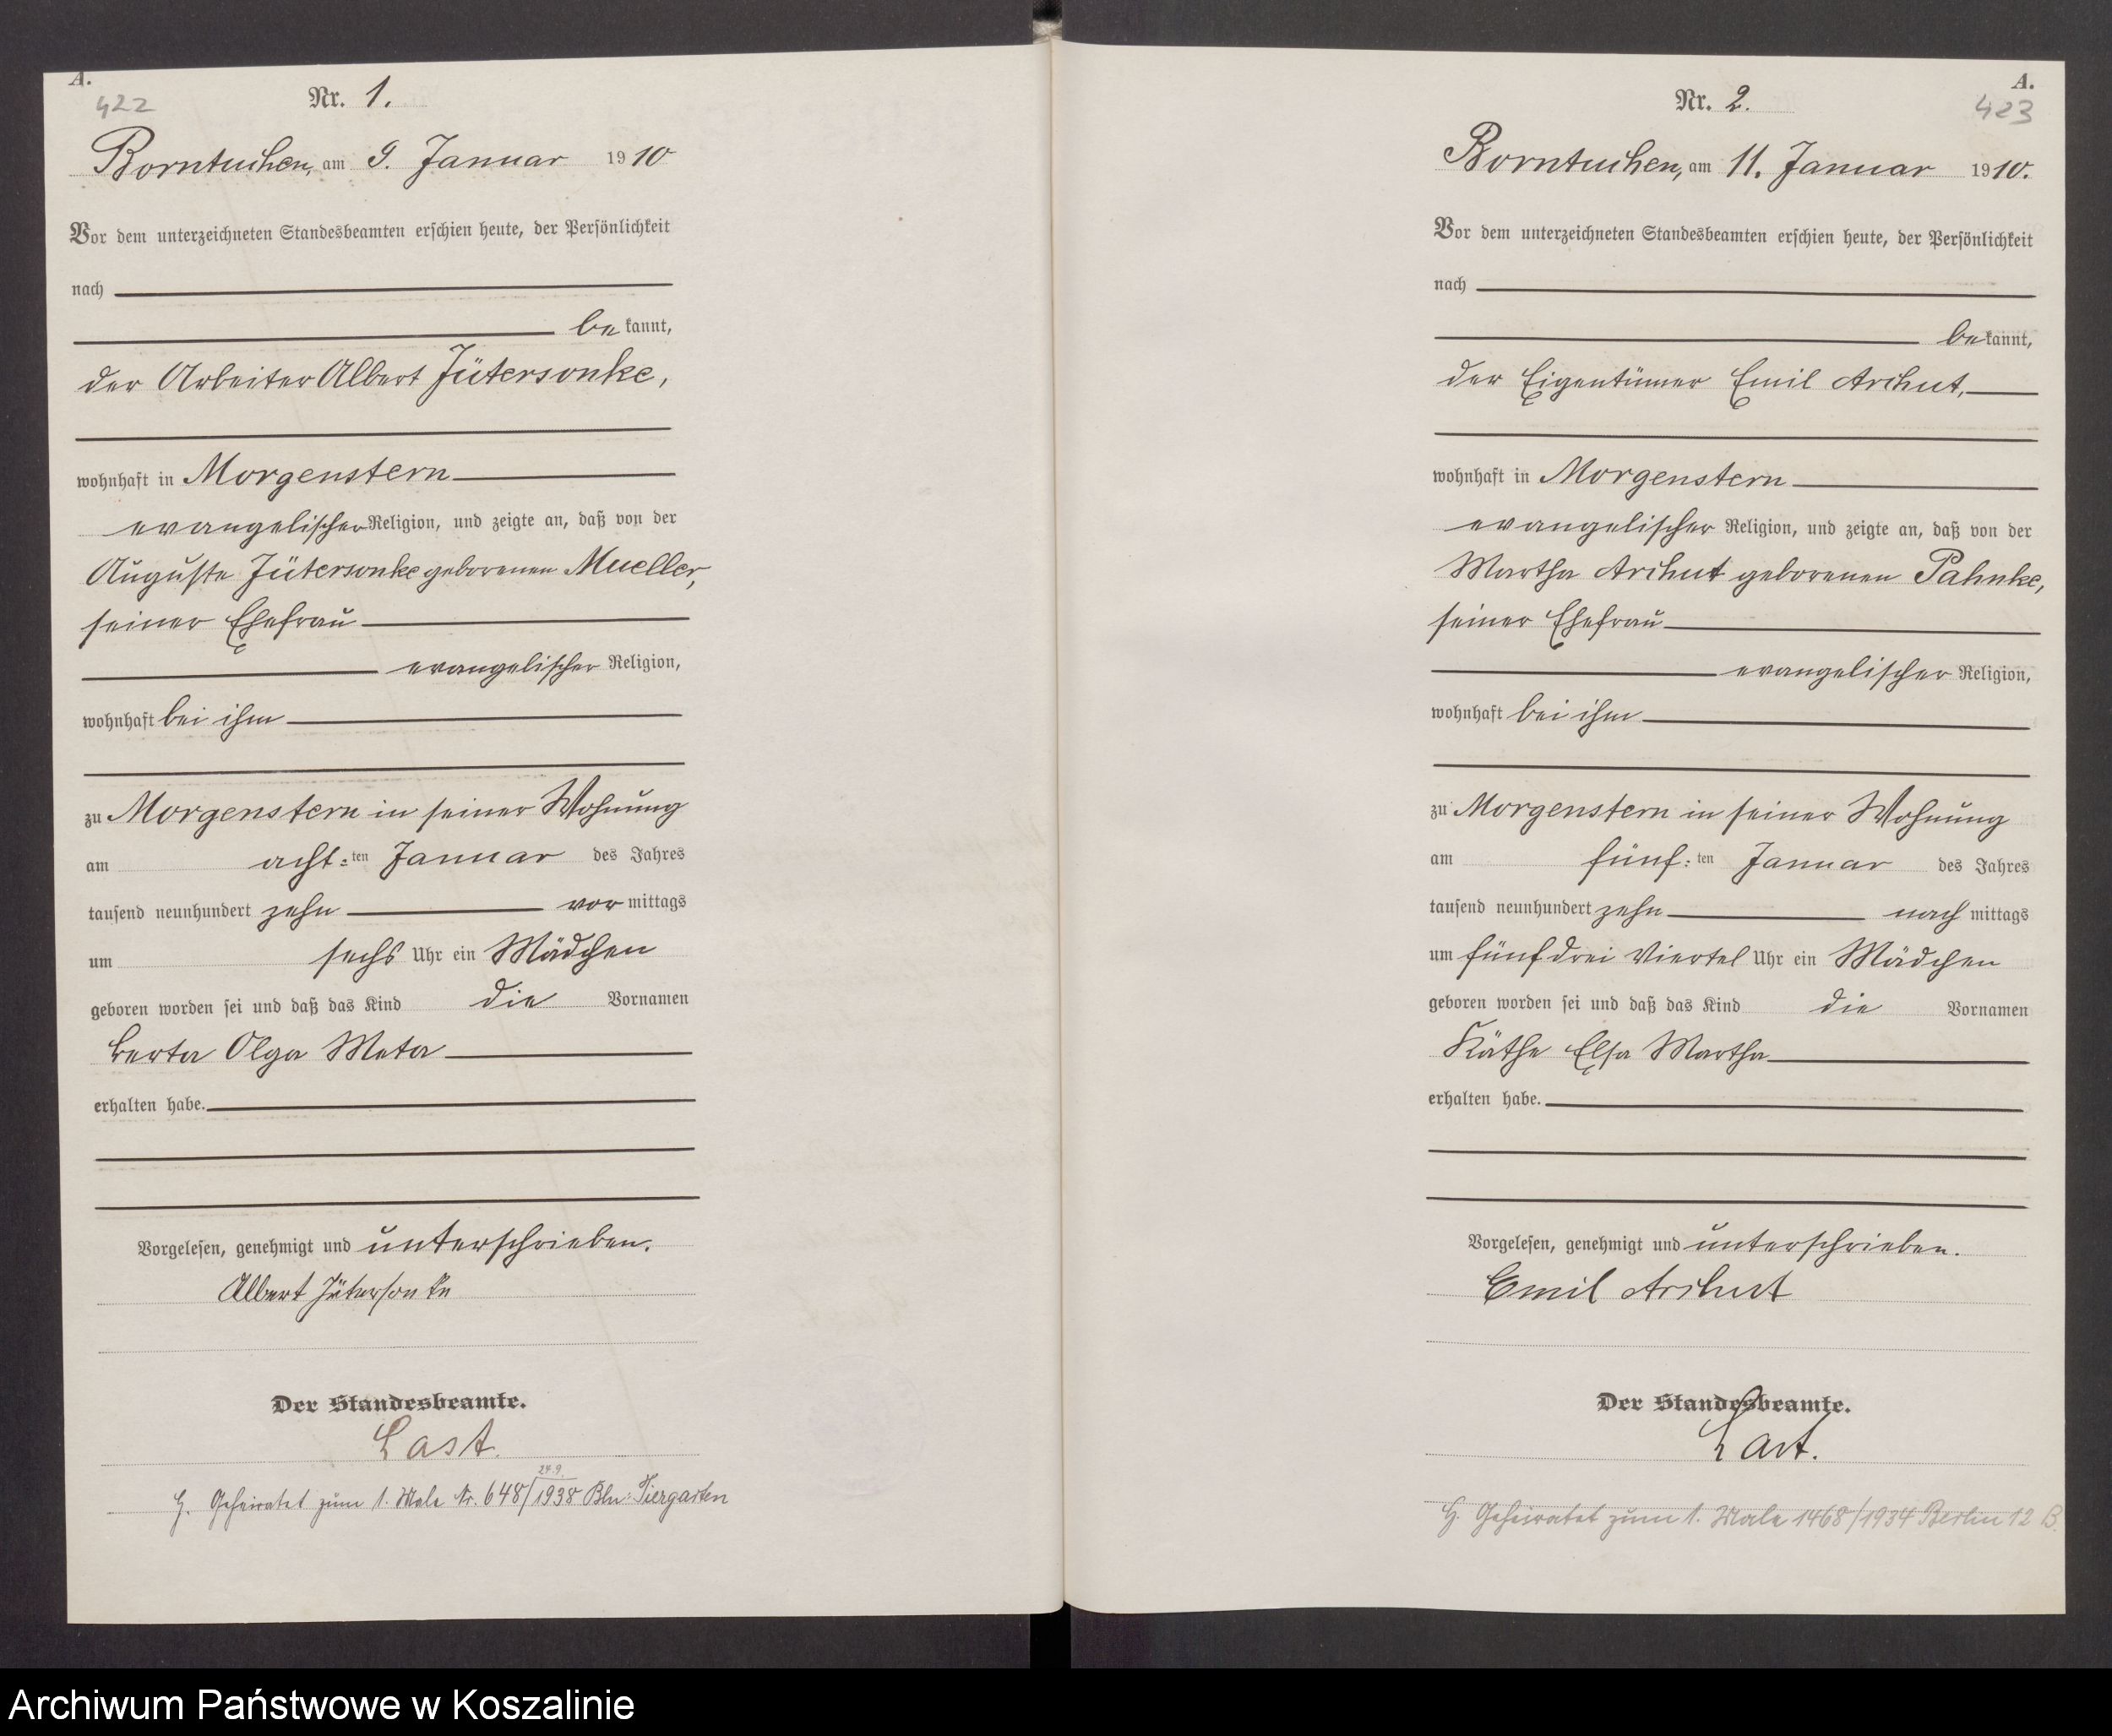 A.
422
Nr. 1.
Borntuchen, am 9. Januar 1910
Vor dem unterzeichneten Standesbeamten erschien heute, der Persönlichkeit
nach
be kannt,
der Arbeiter Albert Jütersonke,
wohnhaft in Morgenstern
evangelischer Religion, und zeigte an, daß von der
Auguste Jütersonke geborenen Mueller,
seiner Ehefrau
evangelischer Religion,
wohnhaft bei ihm
zu Morgenstern in seiner Wohnung
am acht=ten Januar des Jahres
tausend neunhundert zehn vor mittags
um sechs Uhr ein Mädchen
geboren worden sei und daß das Kind die Vornamen
Berta Olga Meta
erhalten habe.
Vorgelesen, genehmigt und unterschrieben.
Albert Jütersonke
Der Standesbeamte.
Last.
24.9.
H. Geheiratet zum 1. Male Nr. 648/1938 Bln-Tiergarten
A.
423
Nr. 2.
Borntuchen, am 11. Januar 1910.
Vor dem unterzeichneten Standesbeamten erschien heute, der Persönlichkeit
nach
be kannt,
der Eigentümer Emil Archut,
wohnhaft in Morgenstern
evangelischer Religion, und zeigte an, daß von der
Martha Archut geborenen Pahnke,
seiner Ehefrau
evangelischer Religion,
wohnhaft bei ihm
zu Morgenstern in seiner Wohnung
am fünf=ten Januar des Jahres
tausend neunhundert zehn nach mittags
um fünf drei Viertel Uhr ein Mädchen
geboren worden sei und daß das Kind die Vornamen
Käthe Elsa Martha
erhalten habe.
Vorgelesen, genehmigt und unterschrieben.
Emil Archut
Der Standesbeamte.
Last.
H. Geheiratet zum 1. Male 1468/1934 Berlin 12 B.
Archiwum Państwowe w Koszalinie